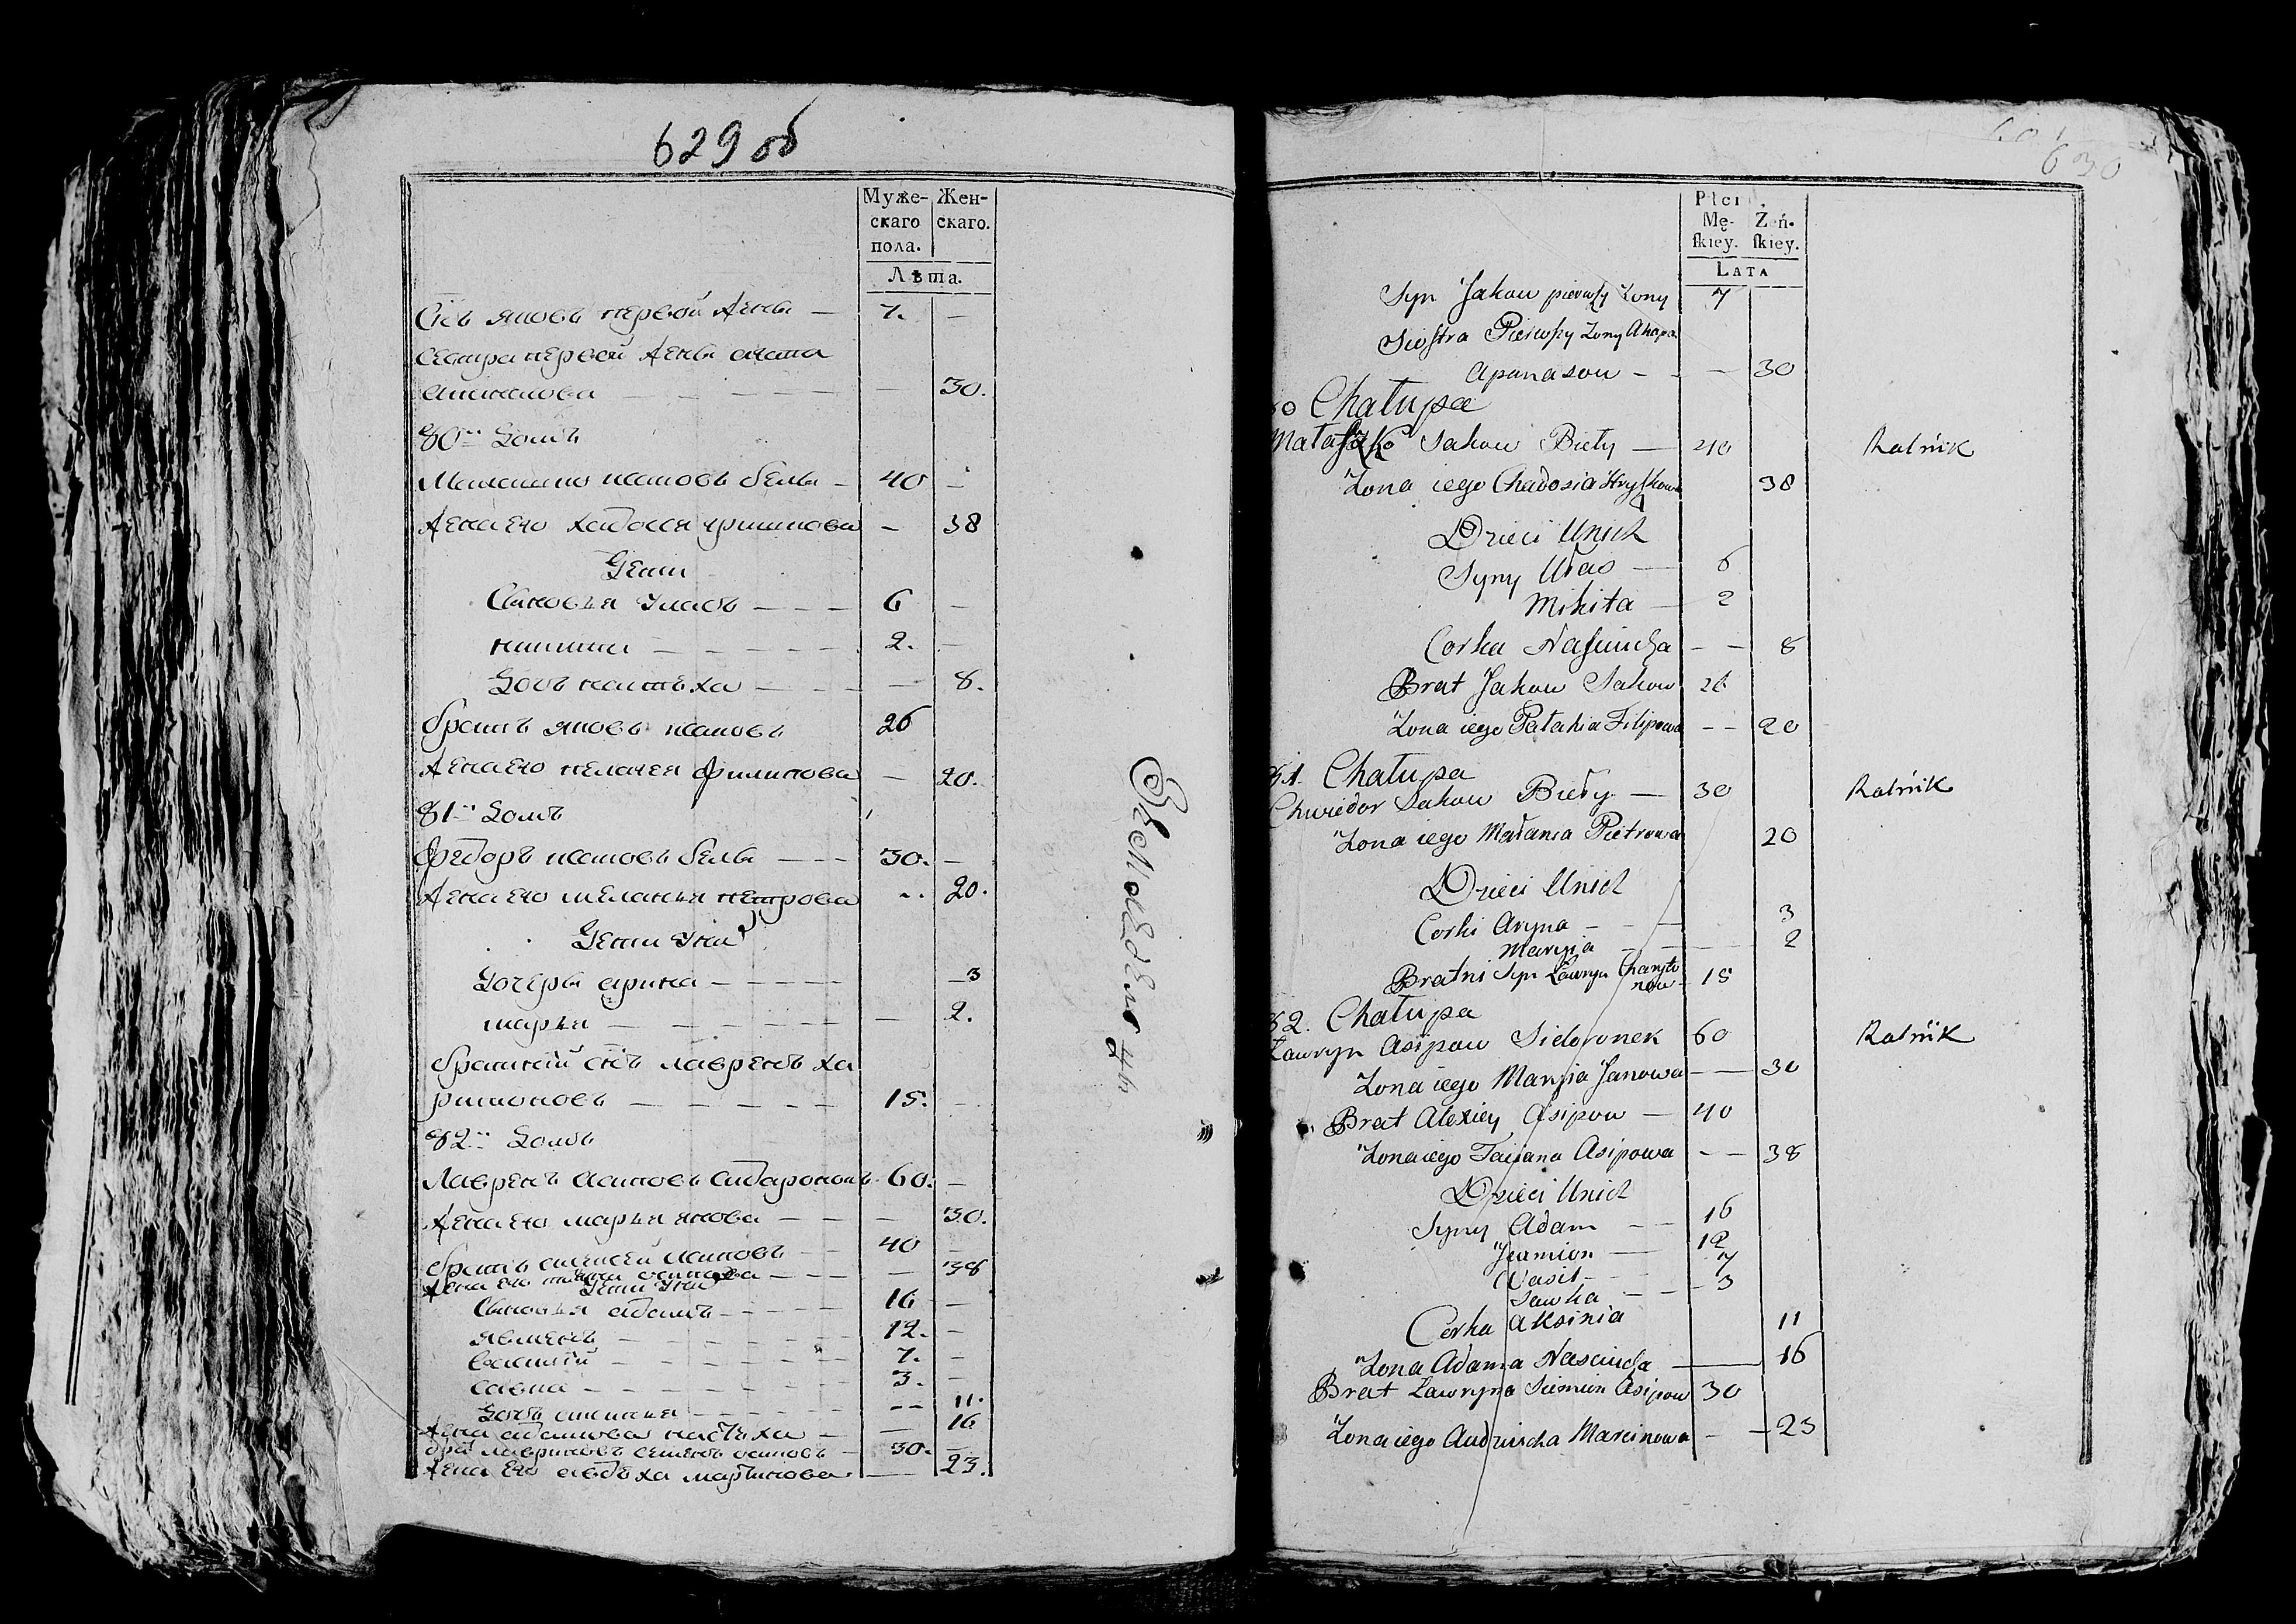 629 об
Муже-скаго пола. Жен-скаго.
Лѣта.
Снъ яковъ первой жены — 7. —
Сестра первой жены агапа
апанасова — — 30.
80й домъ
Матюшко исаковъ белы — 40 —
Жена его хадосся гришкова — 38
Дети
Сыновья уласъ — 6 —
никита — 2. —
Дочь настюха — 8.
братъ яковъ исаковъ 26
Жена его пелагея филипова — 20.
81й домъ
Федоръ исаковъ белы — 30. —
Жена его меланья петрова — 20.
Дети унихъ
Дочери арина — 3
марья — — 2.
братний снъ лавренъ ха
ритоновъ — 15. —
82й домъ
Лавренъ асиповъ сидаронокъ 60. —
Жена его марья янова — — 30.
братъ алексей асиповъ — 40
Жена его татяна осипова — — 38
Дети унихъ
Сыновья адамъ — 16 —
явменъ — 12. —
василий — 7. —
савка — 3. —
Дочь аксинья — — 11.
Жена адамова настюха — — 16
бра лавриновъ семенъ осиповъ — 30. —
Жена его авдюха мартинова — 23.
земледелецъ
630
Płci Mę-ſkiey. Żeń-ſkiey.
Lata
Syn Jakow pierwſzy Zony 7
Sioſtra Pierwſzy Zony Ahapa
Apanasow — — 30
80 Chałupa
Mataſzko Sakow Bieły — 40 Rolnik
Żona iego Chadosia Hryſkowa 38
Dzieci Unich
Syny Ułas — 6
Mikita — 2
Corka Naſciucha — — 8
Brat Jakow Sakow 26
Żona iego Pałahia Filipowa — — 20
81. Chałupa
Chwiedor Sakow Bieły — 30 Rolnik
Żona iego Małania Pietrowa 20
Dzieci Unich
Corki Aryna — — 3
Maryia — — 2
Bratni Syn Ławryn Charyto
now 15
82. Chałupa
Ławryn Asipow Sidoronek 60 Rolnik
Żona iego Maryia Janowa — — 30
Brat Alexiey Asipow — 40
Żona iego Taciana Asipowa — — 38
Dzieci Unich
Syny Adam — — 16
Jeumion — 12
Wasil — 7
Sawka — — 3
Corka Aksinia 11
Żona Adama Nasciucha — 16
Brat Ławryna Siemion Asipow 30
Żona iego Audziucha Marcinowa — — 23